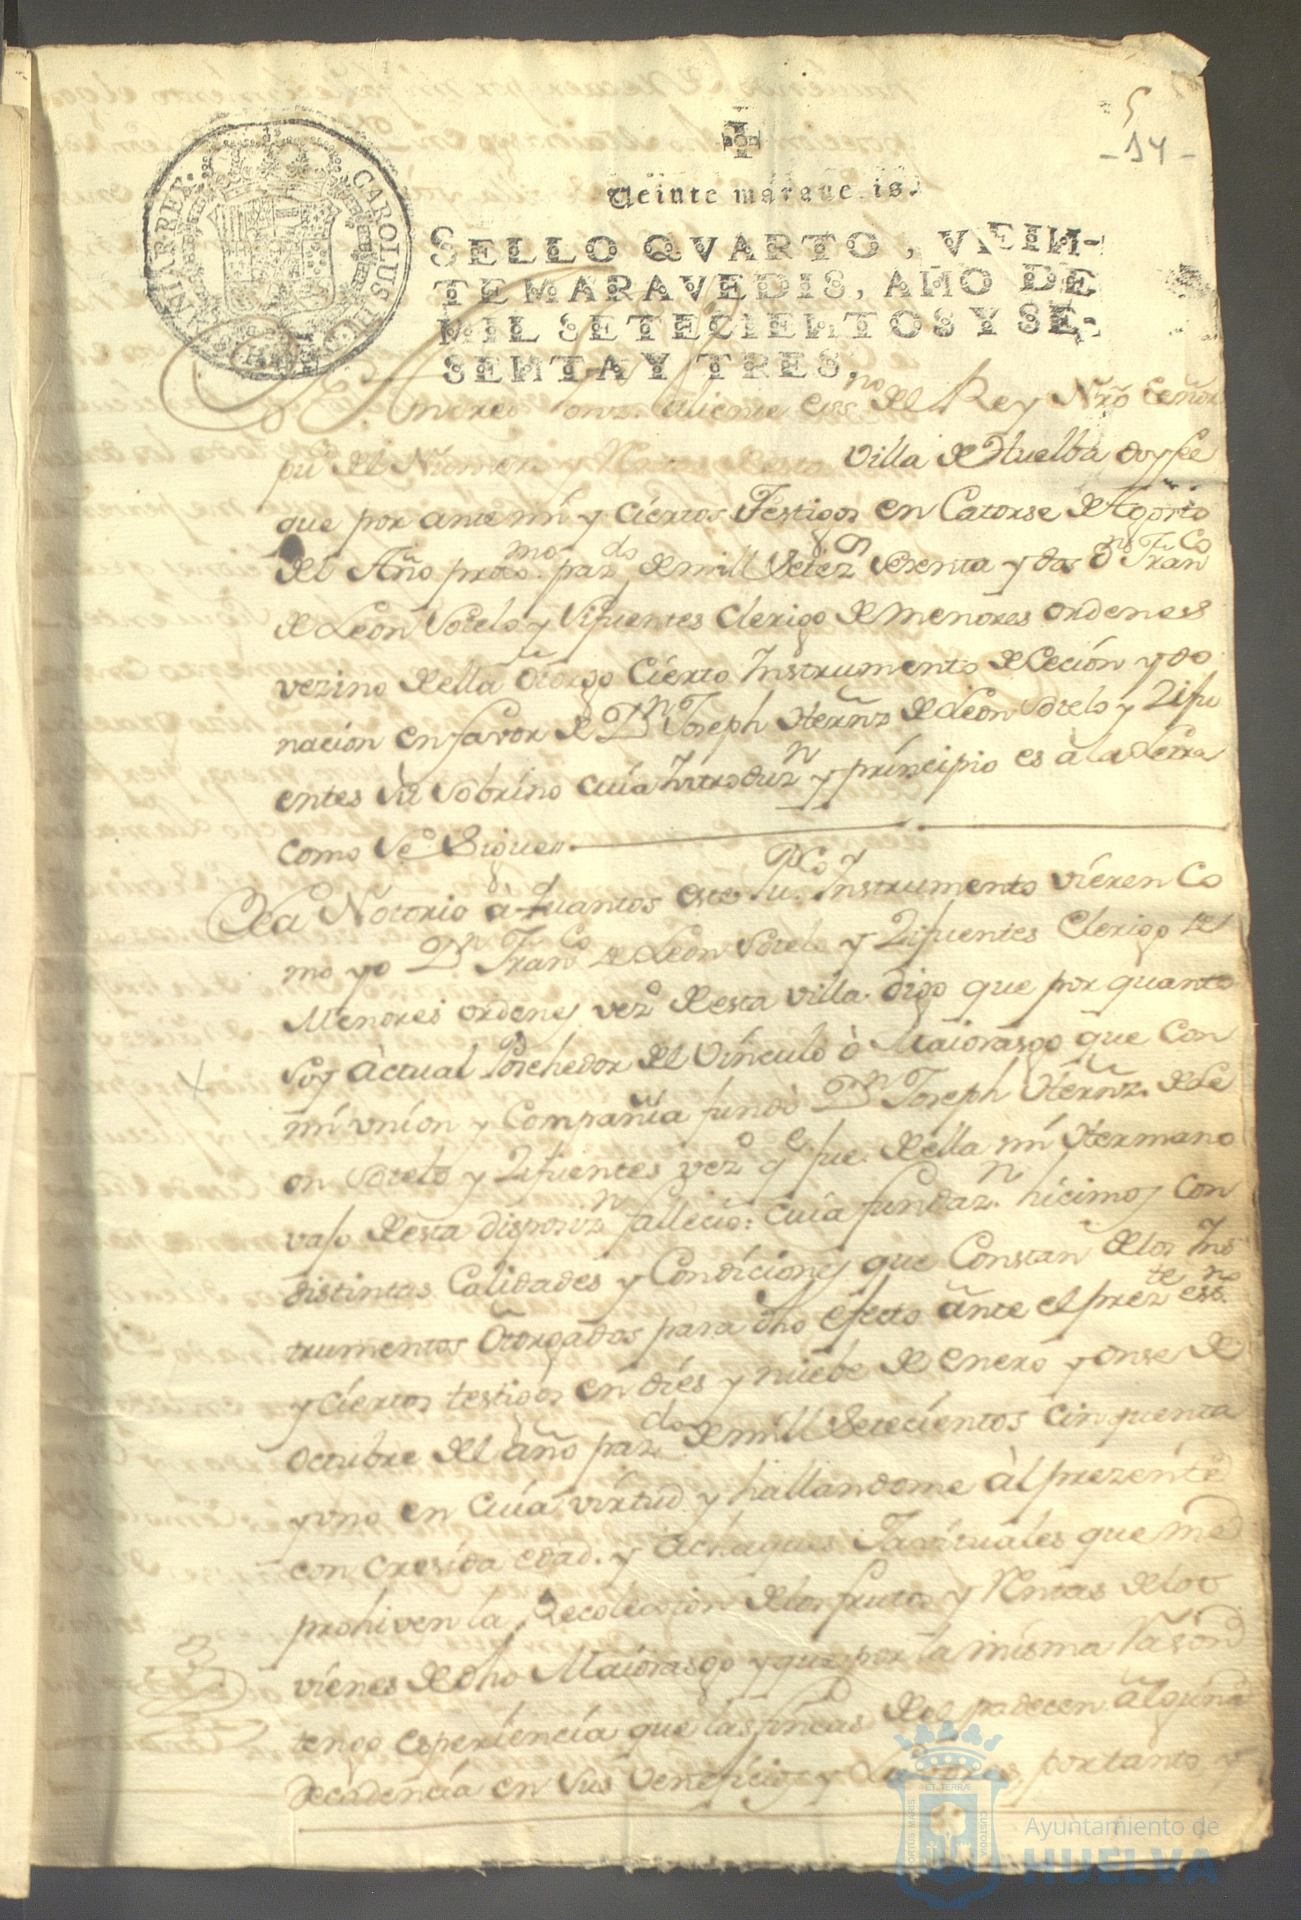 5
- 14 -
Veinte maraue is.
CAROLUS III
HISPANIAR REX.
SELLO QVARTO, VEIN-
TE MARAVEDIS, AÑO DE
MIL SETECIENTOS Y SE-
SENTA Y TRES.
Andres esc.no del Rey Nrõ Señor
del Número y villa de Huelba doy fee
que por ante mi y ciertos Testigos en Catorse de Agosto
del Año proximo pasdo de mill Setez.s Sesenta y dos Dn Franco
de Leon Sotelo y Sifuentes Clerigo de menores ordenes
vezino de ella otorgo Cierto Instrumento de Ceción y do
nacion en favor de Dn Joseph Herñz de Leon Sotelo y Zifu
entes su Sobrino cuia Introduzn y principio es à la Letra
como se Sigue
Sea Notorio à quantos este Puco Instrumento vieren Co
mo yo Dn Franco de Leon Sotelo y Zifuentes Clerigo de
Menores ordenes vezo de esta villa. digo que por quanto
soy àctual Posehedor del Vinculo ò Maiorasgo que con
mi vnion y Compañia fundó Dn Joseph Herñz. de Le
on Sotelo y Zifuentes vezo qe fue de ella mi Hermano
vajo de esta disposizn falleció: cuia fundazn hicimos con
distintas Calidades y Condiciones que Constan de los Ins
trumentos Otorgados para dho efecto ante el prezte esno.
y ciertos testigos en dies y nuebe de enero y onse de
octubre del año pazdo de mill Setecientos cinquenta
y vno en cuia virtud y hallandome àl prezente
con cresida edad. y achaques que me
prohiven la Recoleccion de los frutos y Rentas de los
vienes de dho Maiorasgo y que por la misma Rason
tengo esperiencia que las fincas de el padecen alguna
decadencia en sus veneficios y Lavores, por tanto
PORTUS MARIS ET TERRAE CUSTODIA
Ayuntamiento de
HUELVA